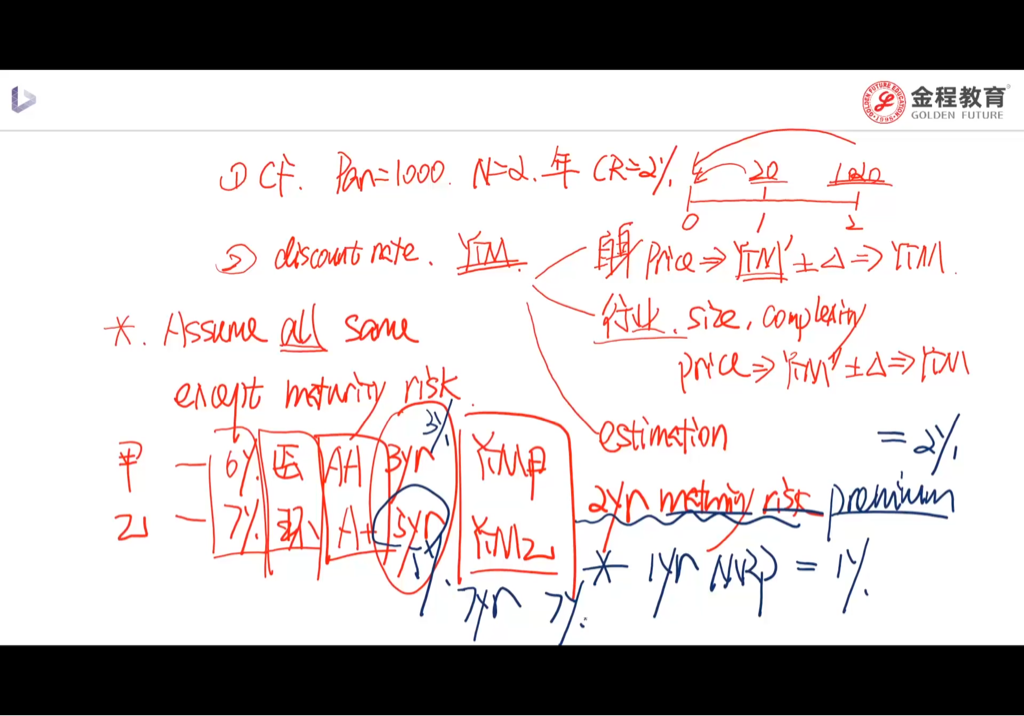 金程教育
GOLDEN FUTURE
① CF. Par=1000. N=2.年 CR=2%. 20 1020
0 1 2
② discount rate. YTM. 自身 Price⇒YTM'±Δ⇒YTM.
行业. size. complexity
price⇒YTM''±Δ⇒YTM
estimation
*. Assume all same
except maturity risk.
甲 — 6% 医 AA 3yr 3% YTM甲 = 2%
乙 — 7% A+ 5yr 5% YTM乙 2yr maturity risk premium
7yr 7%. * 1yr MRP = 1%.